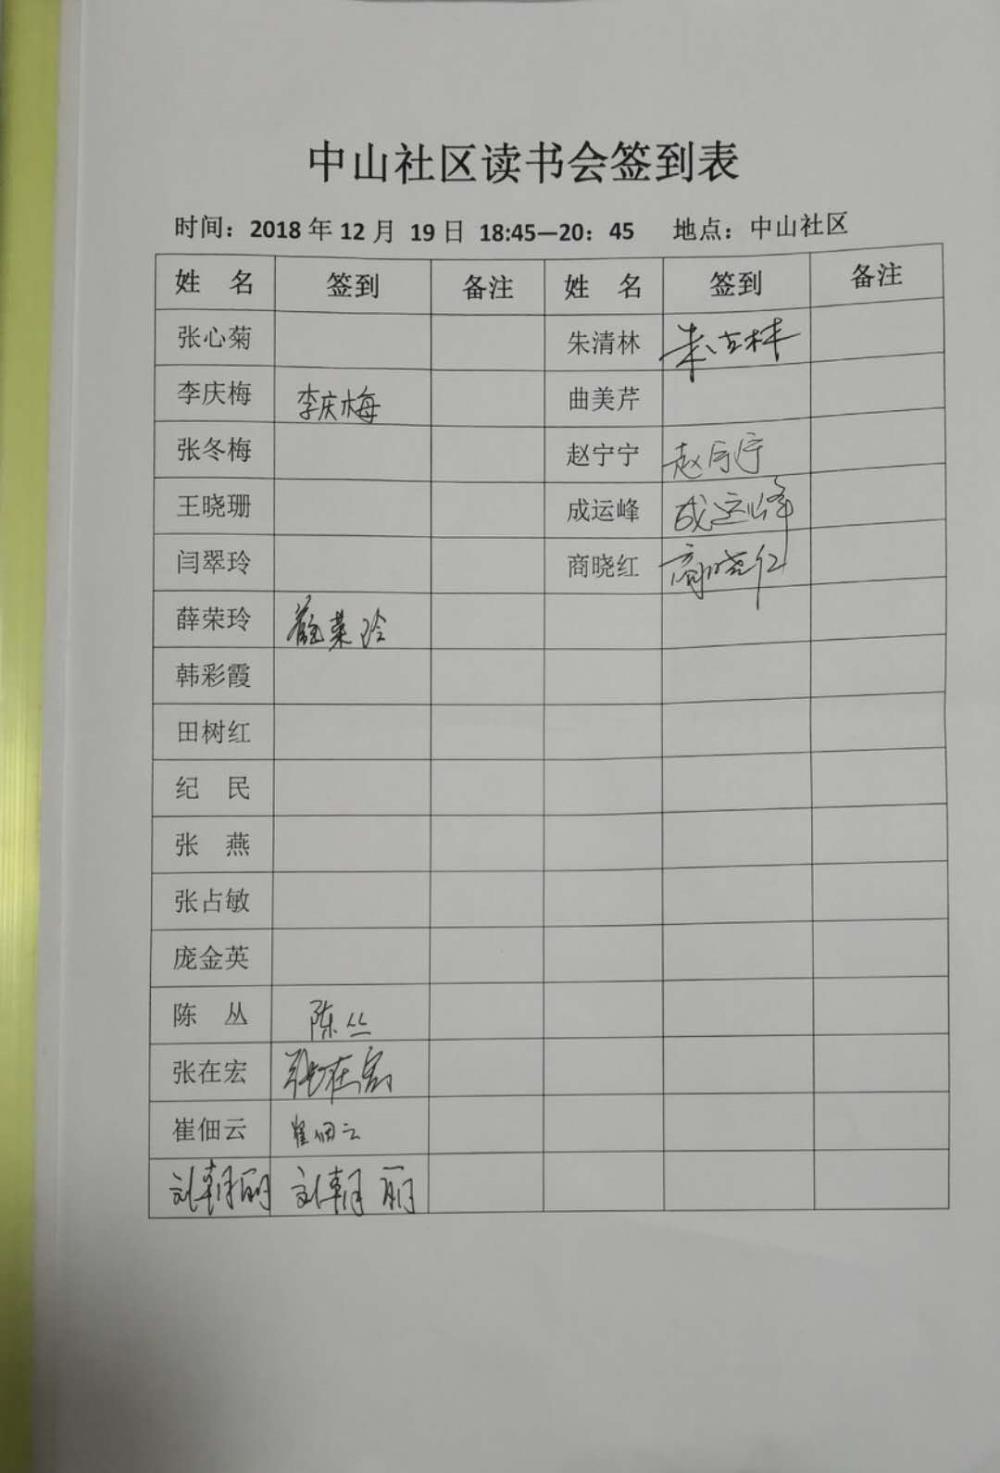 中山社区读书会签到表
时间：2018 年 12 月 19 日 18:45—20：45 地点：中山社区
姓 名 签到 备注 姓 名 签到 备注
张心菊 朱清林 朱清林
李庆梅 李庆梅 曲美芹
张冬梅 赵宁宁 赵宁宁
王晓珊 成运峰 成运峰
闫翠玲 商晓红 商晓红
薛荣玲 薛荣玲
韩彩霞
田树红
纪 民
张 燕
张占敏
庞金英
陈 丛 陈丛
张在宏 张在宏
崔佃云 崔佃云
刘朝丽 刘朝丽